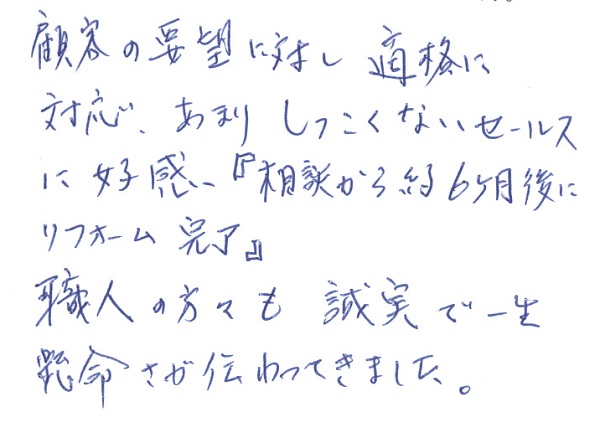 顧客の要望に対し 適格に
対応、あまりしつこくないセールス
に好感、『相談から約6ヶ月後に
リフォーム 完了』
職人の方々も 誠実で一生
懸命さが伝わってきました。